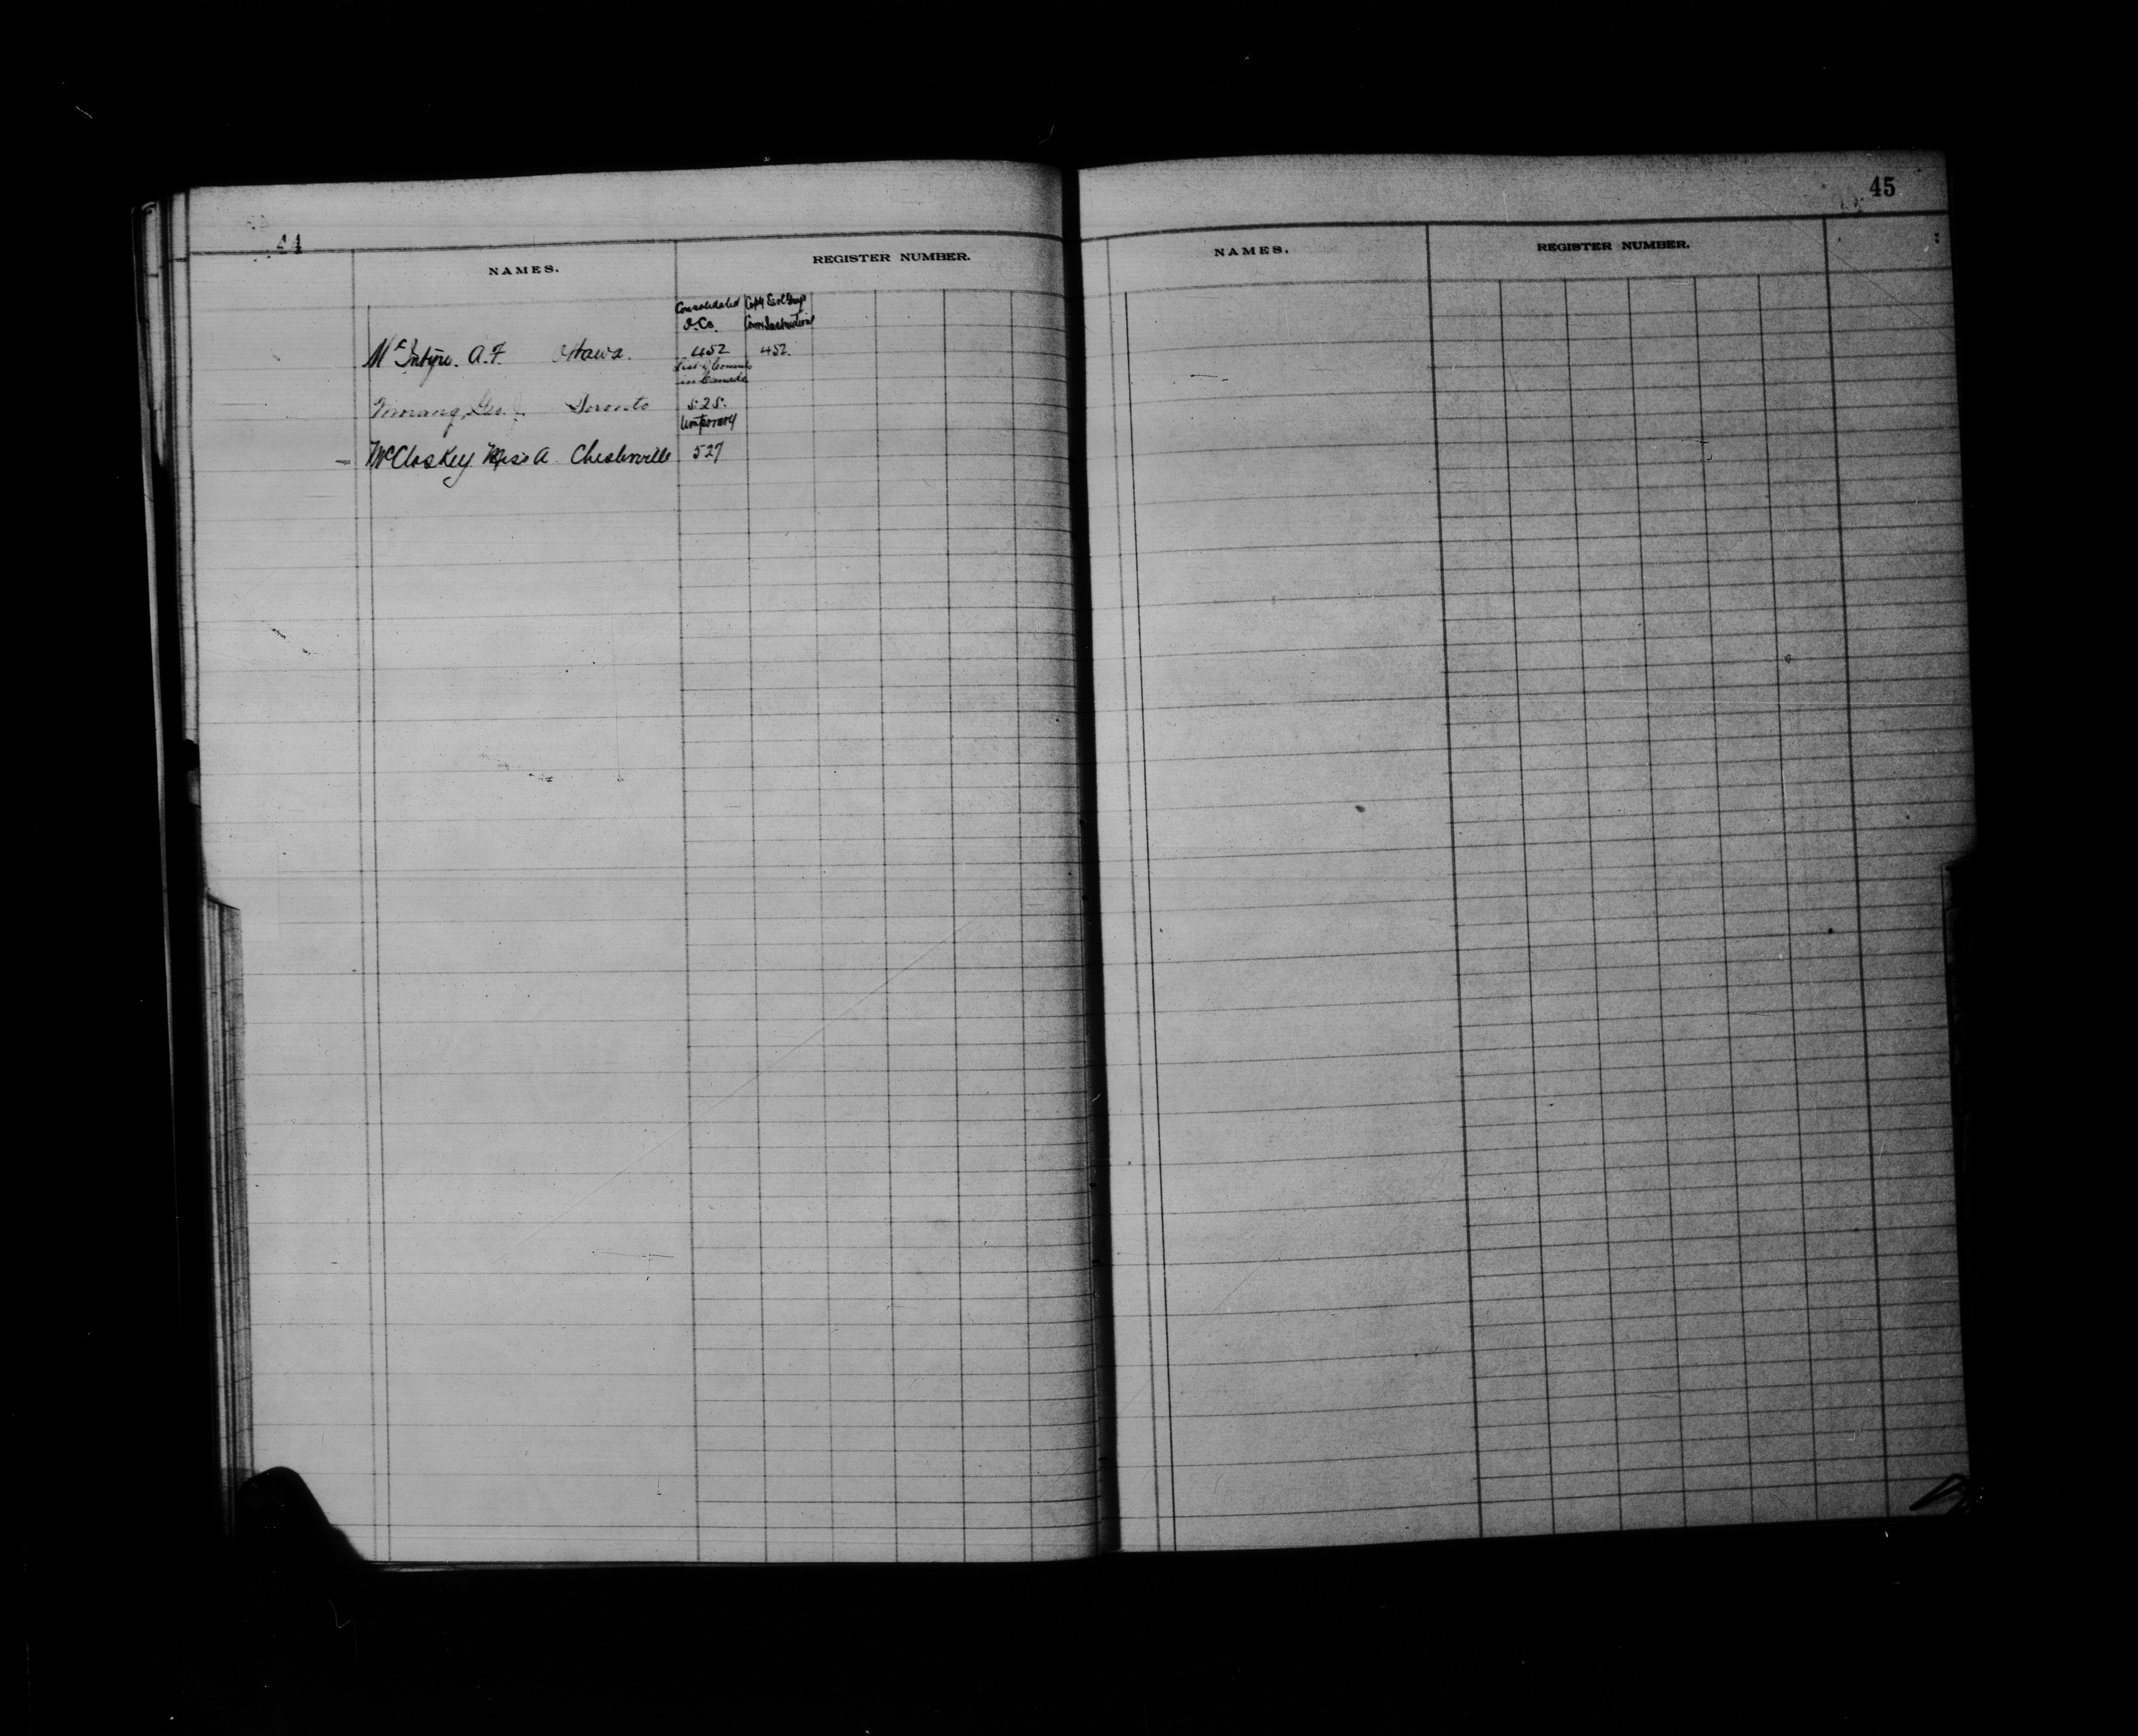 44
NAMES.
REGISTER NUMBER.
Consolidated
O. Co.
Copy Earl Grey's
Comn Instructions
McIntyre. A.F. Ottawa. 452 452.
List of Comns
in Canada
Morang, Geo. Toronto 525.
temporary
McCloskey Miss A Chesterville 527
45
NAMES.
REGISTER NUMBER.